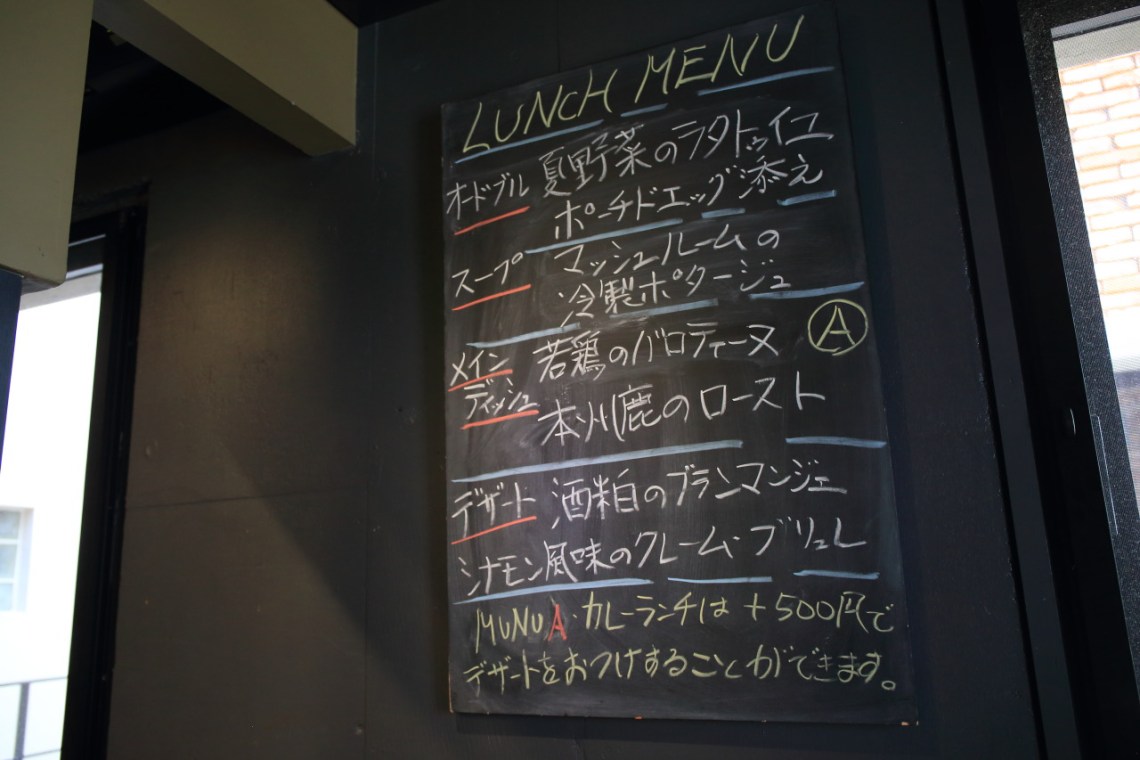 LUNCH MENU
オードブル 夏野菜のラタトゥイユ
ポーチドエッグ添え
スープ マッシュルームの
冷製ポタージュ
メイン 若鶏のバロティーヌ Ⓐ
ディッシュ 本州鹿のロースト
デザート 酒粕のブランマンジェ
シナモン風味のクレーム・ブリュレ
MUNU A・カレーランチは +500円で
デザートをおつけすることができます。